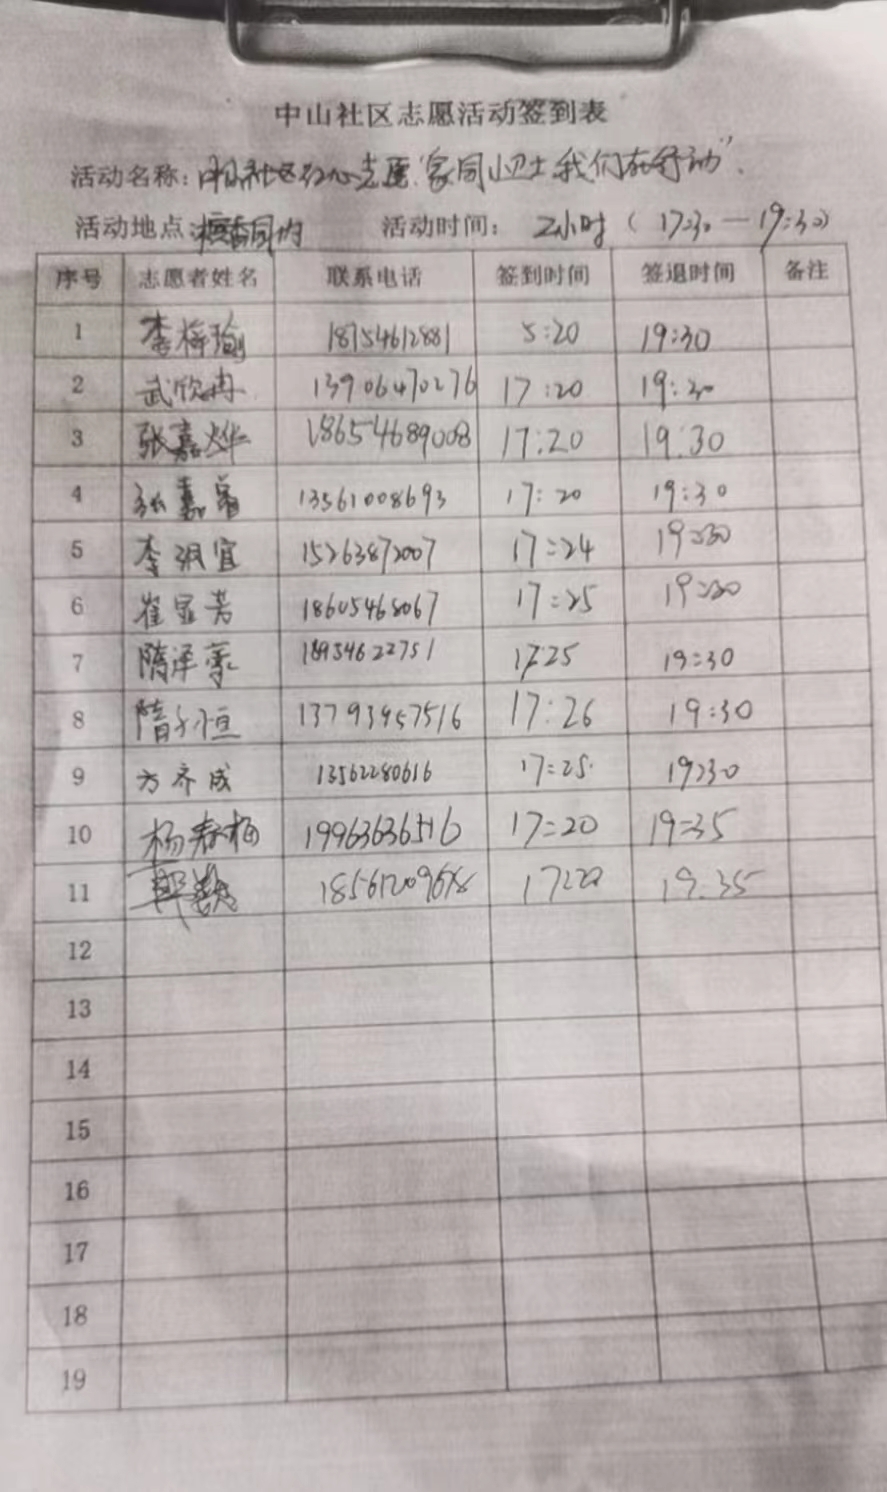 中山社区志愿活动签到表
活动名称: 社区 志愿"家园小卫士 我们在行动".
活动地点: 檀香园内 活动时间: 2小时 ( 17:30 — 19:30)
序号 志愿者姓名 联系电话 签到时间 签退时间 备注
1 李梅瑜 18754612881 5:20 19:30
2 武欣冉 13906470276 17:20 19:30
3 张嘉烨 18654689008 17:20 19:30
4 张嘉睿 13561008693 17:20 19:30
5 李淑宜 15263872007 17:24 19:30
6 崔显芳 18605468067 17:25 19:30
7 隋泽豪 18954622751 17:25 19:30
8 隋子恒 13793957516 17:26 19:30
9 方齐成 13562280616 17:25 19:30
10 杨春梅 19963636516 17:20 19:35
11 17:20 19:35
12
13
14
15
16
17
18
19